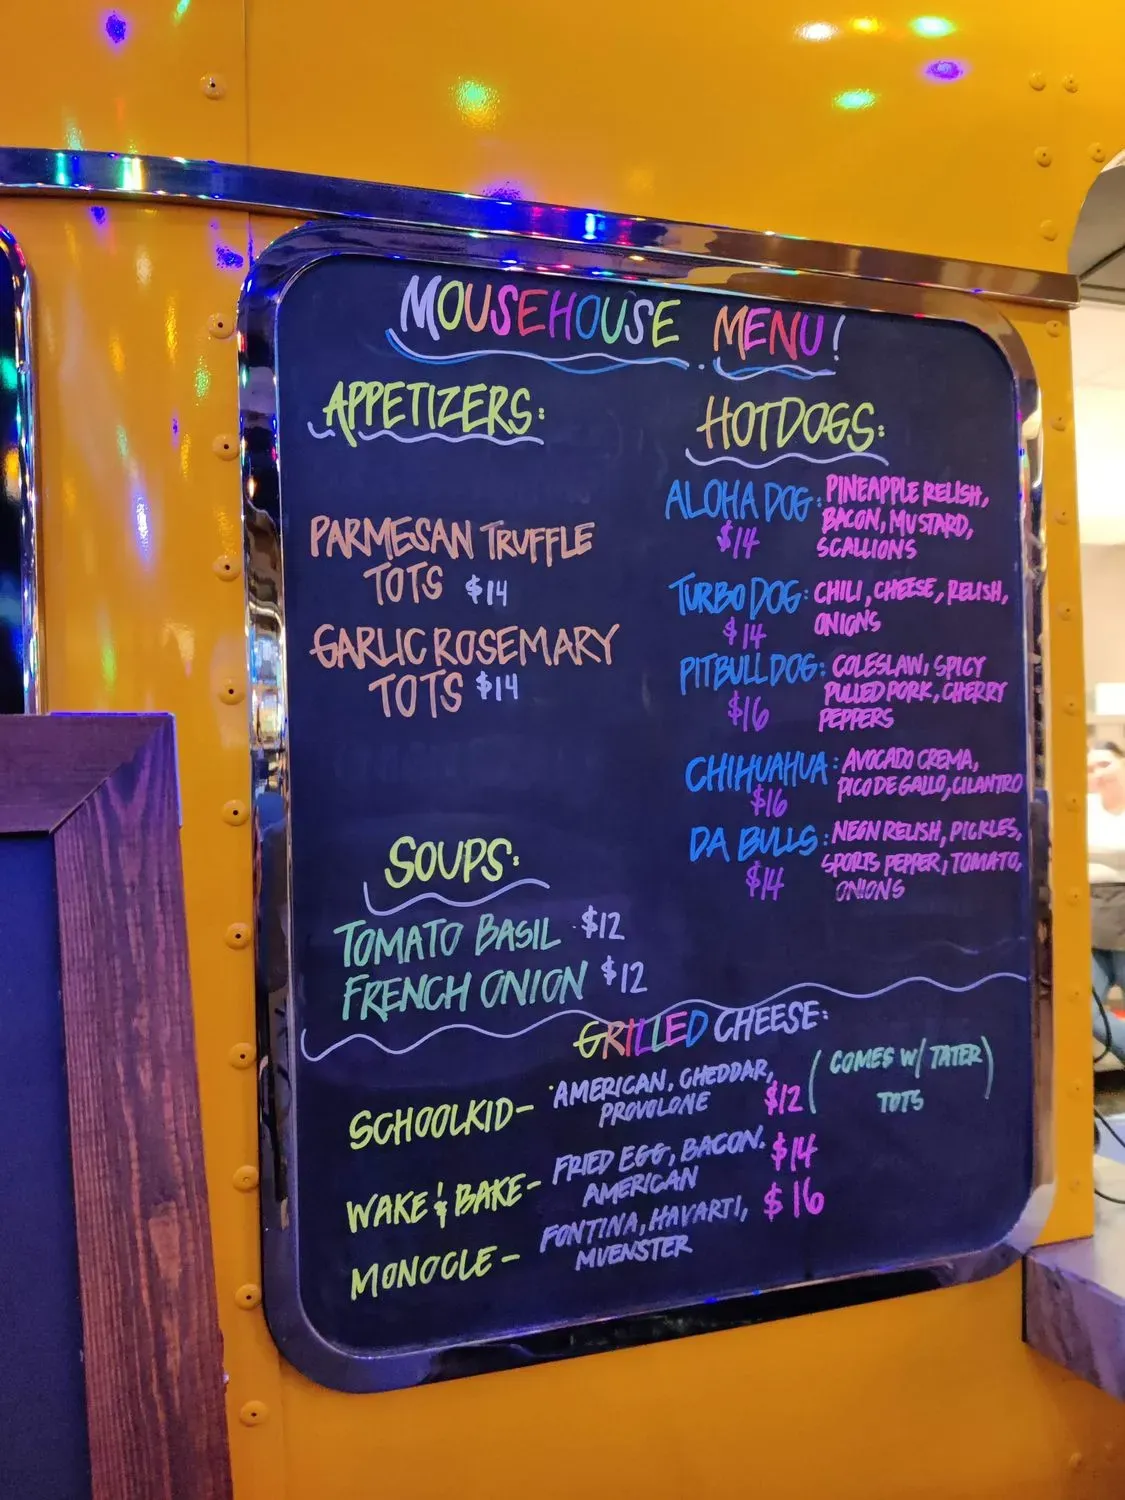 MOUSEHOUSE MENU!
APPETIZERS:
PARMESAN TRUFFLE
TOTS $14
GARLIC ROSEMARY
TOTS $14
SOUPS:
TOMATO BASIL $12
FRENCH ONION $12
HOTDOGS:
ALOHA DOG: PINEAPPLE RELISH,
$14 BACON, MUSTARD,
SCALLIONS
TURBO DOG: CHILI, CHEESE, RELISH,
$14 ONIONS
PITBULL DOG: COLESLAW, SPICY
$16 PULLED PORK, CHERRY
PEPPERS
CHIHUAHUA: AVOCADO CREMA,
$16 PICO DE GALLO, CILANTRO
DA BULLS: NEON RELISH, PICKLES,
$14 SPORTS PEPPER, TOMATO,
ONIONS
GRILLED CHEESE:
SCHOOLKID- AMERICAN, CHEDDAR,
PROVOLONE $12 (COMES W/ TATER
TOTS)
WAKE & BAKE- FRIED EGG, BACON. $14
AMERICAN
MONOCLE- FONTINA, HAVARTI, $16
MUENSTER